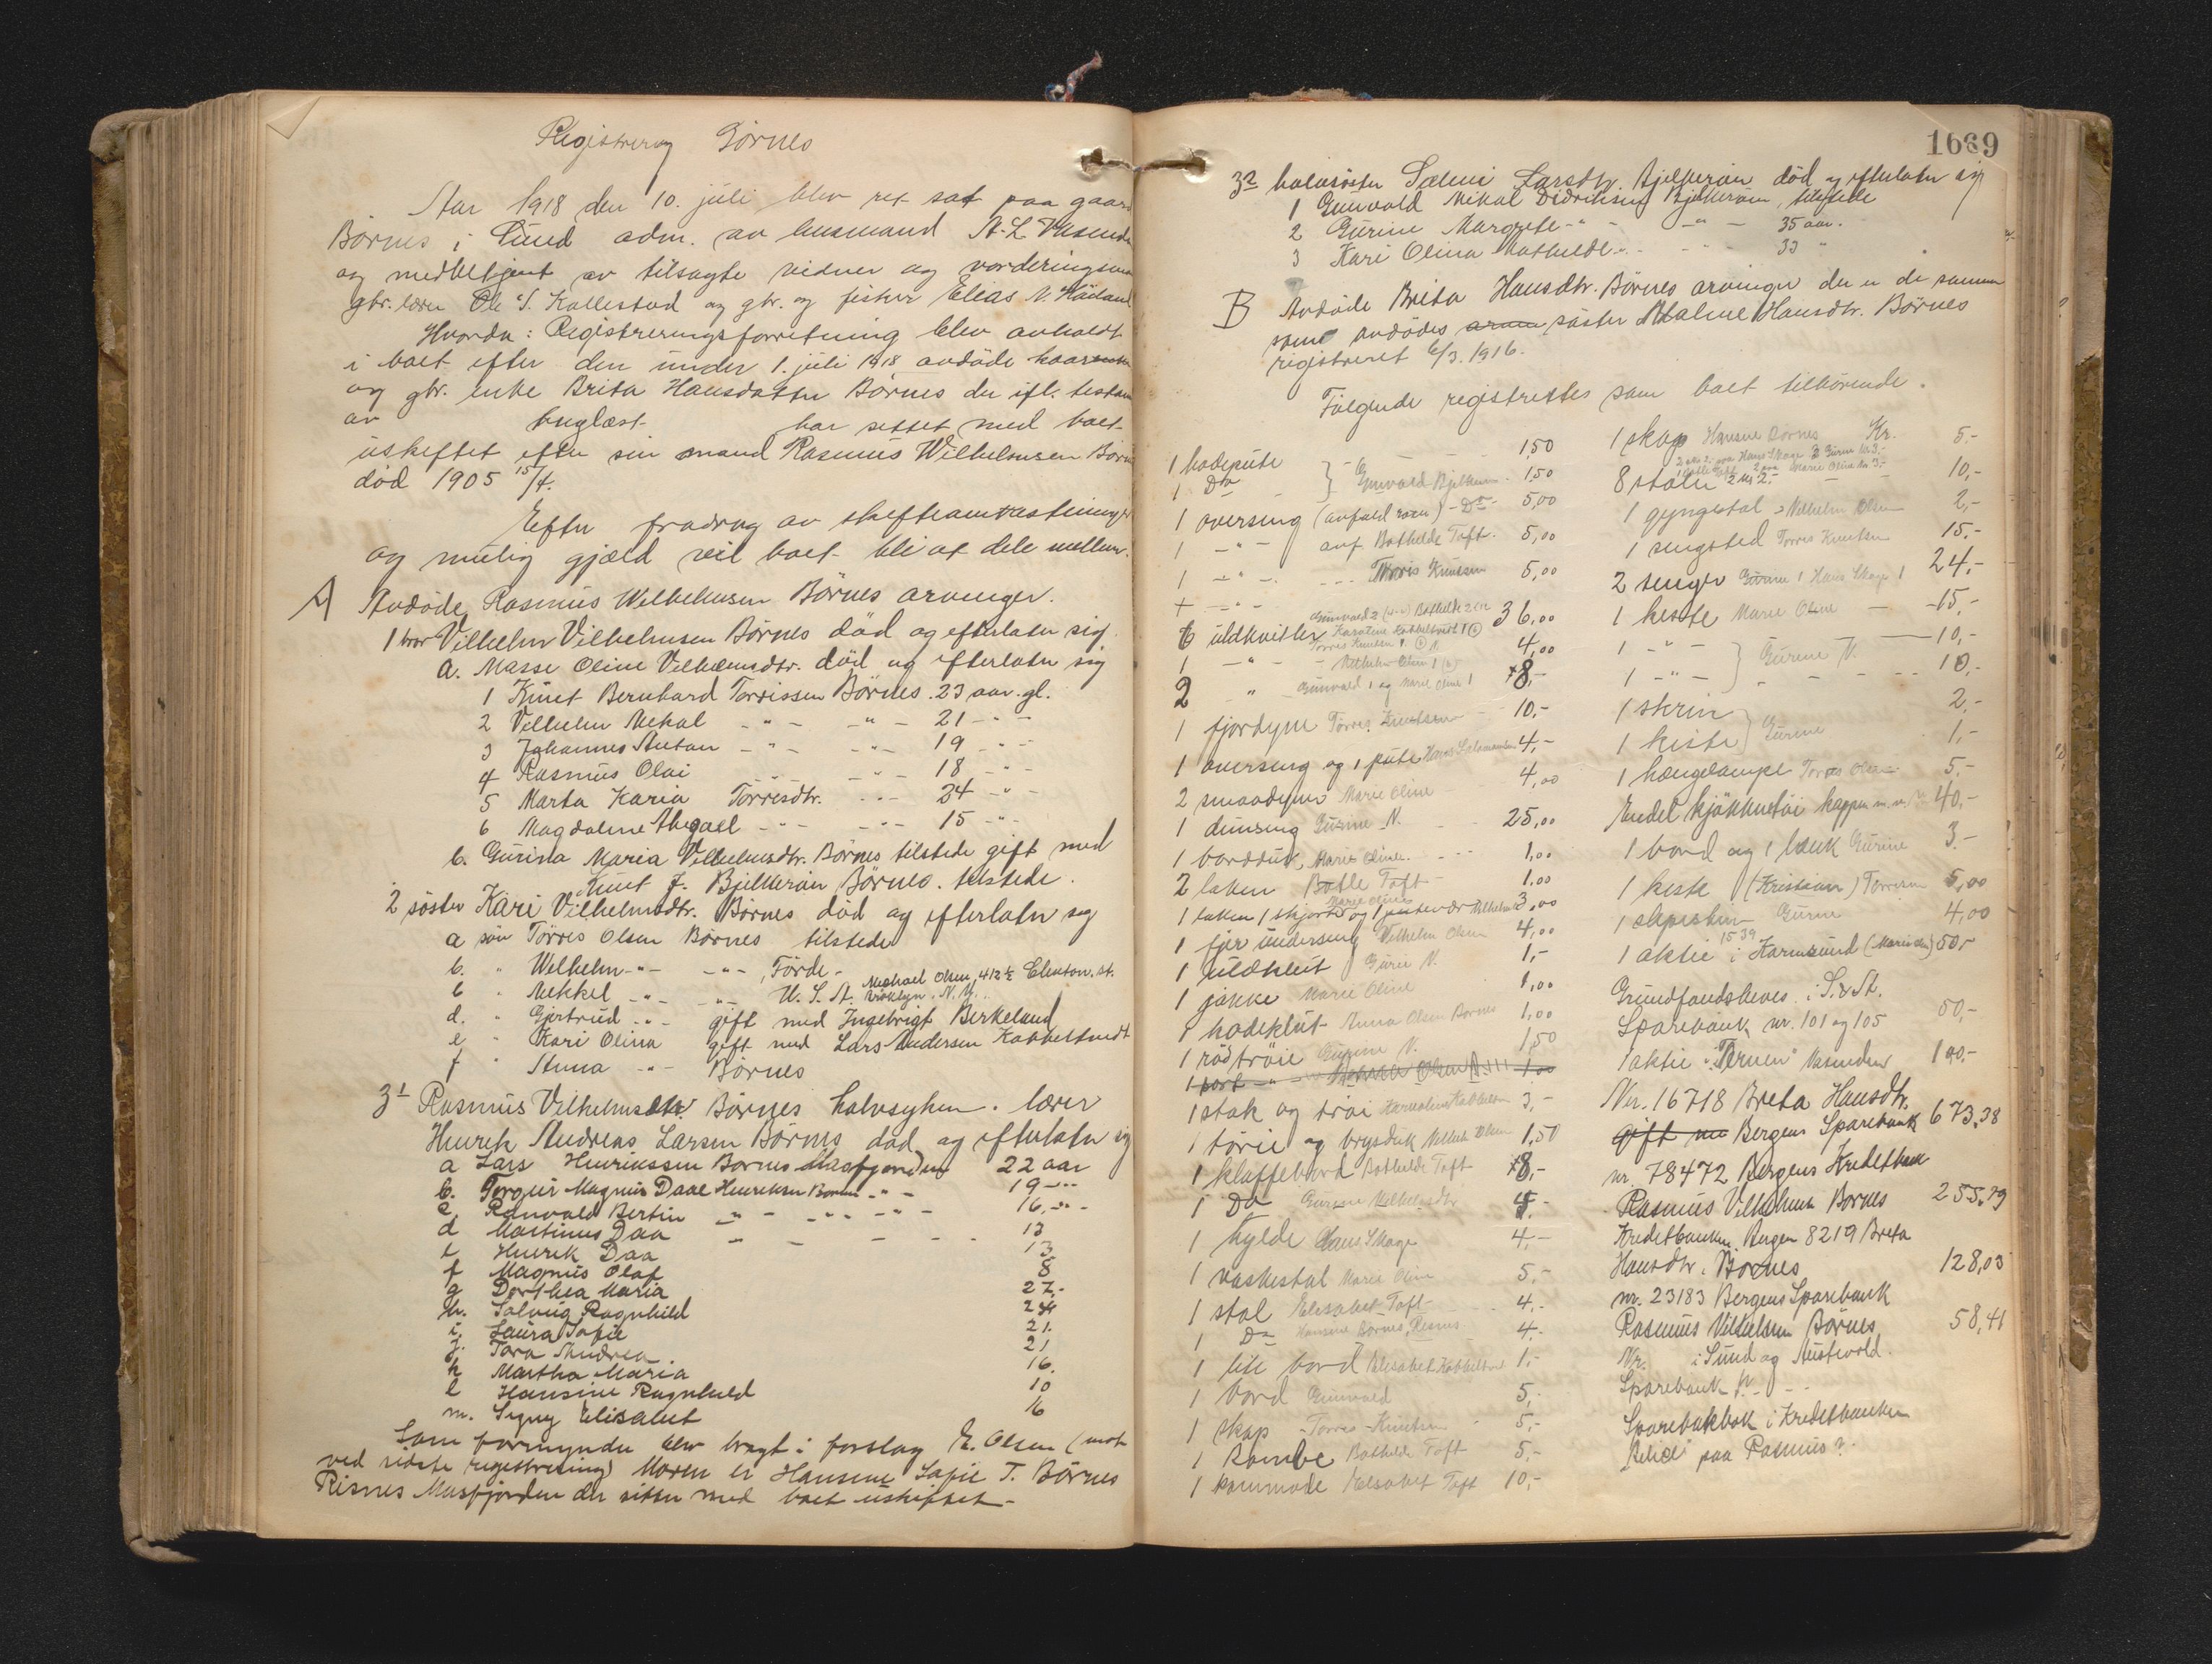 Registrering Börnes
Aar 1918 den 10. juli blev ret sat paa gaard
Börnes i Sund adm. av lensmand A. L. Vasenden
og medbetjent av tilsagte vidner og vorderingsm
gbr. lærer Ole S. Kallestad og gbr. og fisker Elias N. Höiland
Hvorda: Registreringsforretning blev avholdt
i boet efter den under 1. juli 1918 avdöde
og gbr. enke Brita Hansdatter Börnes der ifl. testam
av tinglæst har sittet med boet
uskiftet efter sin mand Rasmus Wilhelmsen Börnes
död 1905 15/4.
Efter fradrag av skifteomkostninger
og mulig gjæld vil boet bli at dele mellem.
A Avdöde Rasmus Wilhelmsen Börnes arvinger.
1 bror Vilhelm Vilhelmsen Börnes död og efterlater sig
a. Masse Oline Vilhelmsdtr. död og efterlater sig
1 Knut Bernhard Torrissen Börnes. 23 aar. gl.
2 Vilhelm Mekal -"- -"- 21 -"-
3 Johannes Anton -"- -"- 19 -"-
4 Rasmus Olai -"- -"- 18 -"-
5 Marta Karia Torrisdtr. -"- 24 -"-
6 Magdalene Abigael -"- -"- 15 -"-
b. Gurina Maria Vilhelmsdtr. Börnes tilstede gift med
Knut J. Bjelkeröen Börnes. tilstede.
2 söster Kari Vilhelmsdtr. Börnes död og efterlater sig
a sön Törres Olsen Börnes tilstede
b. " Wilhelm -"- -"- Förde -
c " Mekkel -"- -"- U. S. A. Michael Olsen, 412½ Clinton. st.
Brooklyn. N. Y.
d. " Gjertrud -"- gift med Ingebrigt Birkeland
e " Kari Olina gift med Lars Andersen Kabbeltvedt
f " Anna -"- Börnes
3¹ Rasmus Vilhelmsen Börnes halvsysken. lærer
Henrik Andreas Larsen Börnes död og efterlater sig
a Lars Henrikssen Bornes Masfjorden 22 aar
b. Torgeir Magnus Daae Henriksen Bornes -"- 19 -"-
c. Ranvald Bertin -"- -"- -"- 16 -"-
d Martinus Daa -"- - - - 13
e Henrik Daa 13
f Magnus Olaf 8
g Dorthea Maria 27.-
h. Solveig Ragnhild 24
i. Laura Sofie 21.
j. Tora Andrea 21
k Martha Maria 16.
l Hansine Ragnhild 10
m. Signy Elisabet 16
Som formynder blev bragt i forslag E. Olsen (mot
ved sidste registrering) Moren er Hansine Sofie T. Börnes
Risnes Masfjorden der sitter med boet uskiftet -
1669
3² halvsöster Salmi Larsdtr. Bjelkeröen död og efterlater sig
1 Gunvald Mikal Didriksen Bjelkeröen, tilstede
2 Gurine Margrete -"- -"- 35 aar.
3 Kari Olina Mathilde -"- - - 33 "
B Avdöde Brita Hansdtr. Börnes arvinger der er de samme
som avdödes söster Malene Hansdtr. Börnes
registreret 6/3. 1916.
Fölgende registrertes som boet tilhörende.
1 hodepute 1,50
1 Do } Gunvald Bjelkeröen 1,50
1 overseng (avfald rosa) - Do - 5,00
1 -"- anf. Bothilde Toft. 5,00
1 -"- - - - Törris Knutsen 5,00
6 uldkvitler Gunvald 2 Bothilde 2 36,00
Torres Knutsen 1
1 -"- Vilhelm Olsen 1 4,00
2 " Gunvald 1 og Marie Oline 1 8,-
1 fjordyne Torres Knutsen 10,-
1 overseng og 1 pute Hans Salamonsen 4,-
2 smaadyner Marie Oline 4,00
1 dunseng Gurine N. 25,00
1 bordduk, Marie Oline. 1,00
2 laken Botle Toft - 1,00
1 laken 1 skjorte og 1 putevær Vilhelm 3,00
Marie Oline
1 fjer underseng Vilhelm Olsen 4,00
1 uldklut Gurine V. 1,-
1 jakke Marie Oline 1,00
1 hodeklut Anna Olsen Bornes 1,00
1 röd tröie Gurine V. 1,50
1 sort -"- Olsen 1,00
1 stak og tröi Kabbeltv 3,-
1 törie og brysduk Vilhelm Olsen 1,50
1 klaffebord Bothilde Toft 8,-
1 Do Gurine Vilhelmsdtr 4,-
1 hylde Hans Skage 4,-
1 vaskestol Marie Oline 5,-
1 stol Elisabet Toft 4,-
1 Do Hansine Börnes, Risnes 4,-
1 lite bord Elisabet Kabbeltvet 1,-
1 bord Gunvald 5,
1 skap - Torres Knutsen 5,-
1 Rombe Bothilde Toft 5,-
1 kommode Elisabet Toft 10,-
1 skap Hansine Börnes Kr. 5.-
2 stk 2.- paa Hans Skage 2 Gurine kr 3.-
2 paa Marie Oline kr 3.-
8 stoler 2 kr 2.- 10,-
1 gyngestol - Vilhelm Olsen 2,-
1 sengsted Torres Knutsen 15.-
2 senger Gurine 1 Hans Skage 1 24,-
1 kiste Marie Oline - 15,-
1 -"- } Gurine V. 10,-
1 -"- } 10,-
1 skrin 2,-
1 kiste } Gurine 1,-
1 hængelampe Torres Olsen 5.-
Endel kjökkentöi kopper m.m. 40,-
1 bord og 1 bænk Gurine 3.-
1 kiste (Kristian) Torrisen 5,00
Gurine 4,00
15 39
1 aktie i Karmsund (Marinus) 50,-
Grundfondsbevis i S. & A.
Sparebank nr. 101 og 105 50,-
1 aktie "Ternen" Vasenden 100,-
Nr. 16718 Breta Hansdtr.
gift me Bergens Sparebank 673,38
nr. 78472 Bergens Kreditbank
Rasmus Vilhelmsen Börnes 255,79
Kreditbanken Bergen 8219 Breta
Hansdtr. Börnes 128,03
nr. 23183 Bergens Sparebank
Rasmus Vilhelmsen Börnes 58,41
Nr. i Sund og Austevold
Sparebank
Sparebakbok i Kreditbanken
paa Rasmus?